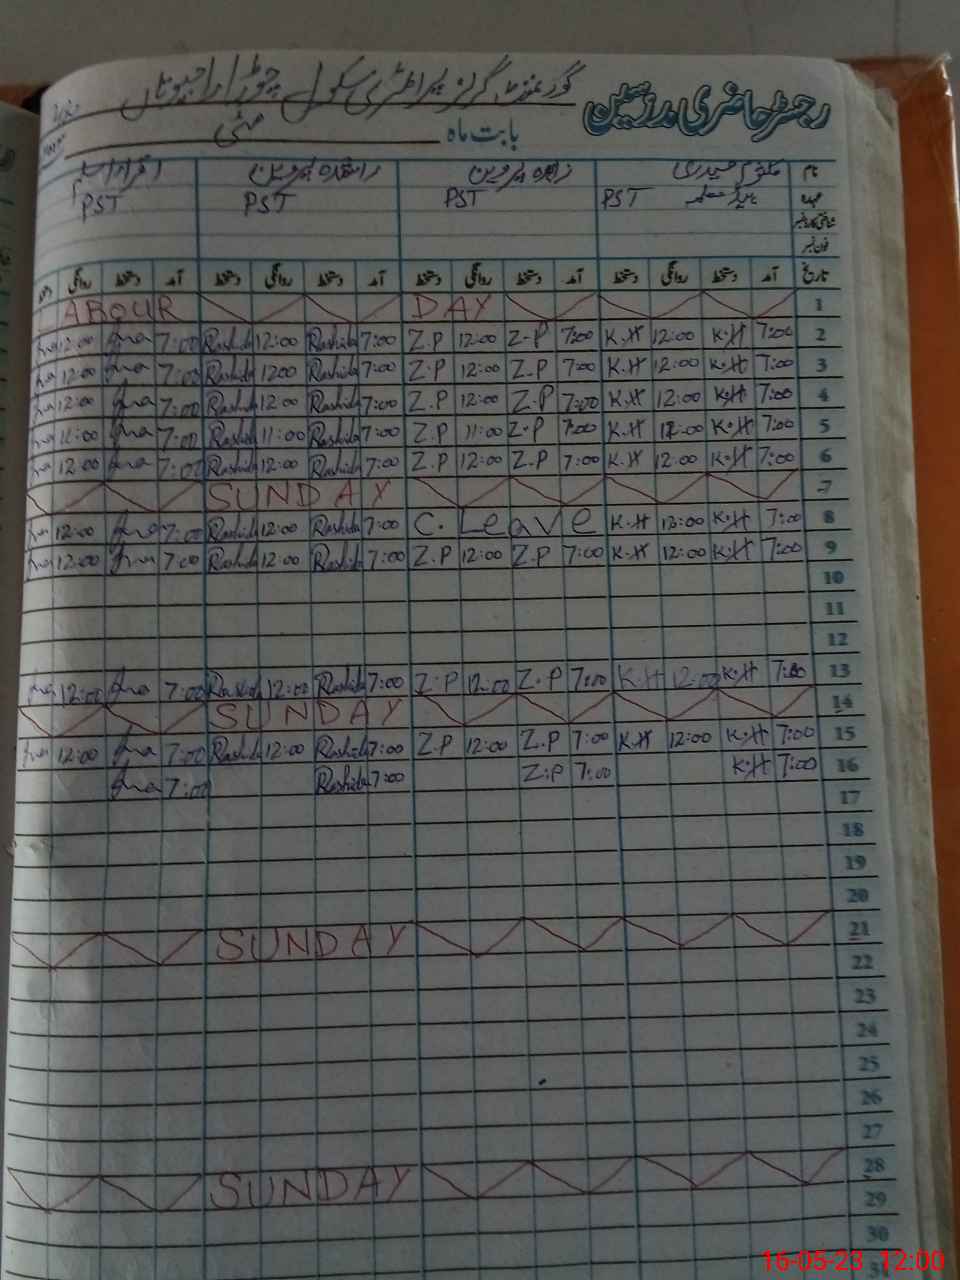 رجسٹر حاضری مدرسین
گورنمنٹ گرلز پرائمری سکول
بابت ماہ مئی
نام زاہدہ پروین راشدہ پروین
عہدہ PST PST PST PST
فون نمبر
تاریخ آمد دستخط روانگی دستخط آمد دستخط روانگی دستخط آمد دستخط روانگی دستخط آمد دستخط روانگی
LABOUR DAY 1
12:00 7:00 Rashida 12:00 Rashida 7:00 Z.P 12:00 Z.P 7:00 K.H 12:00 K.H 7:00 2
12:00 7:00 Rashida 1200 Rashida 7:00 Z.P 12:00 Z.P 7:00 K.H 12:00 K.H 7:00 3
12:00 7:00 Rashida 12:00 Rashida 7:00 Z.P 12:00 Z.P 7:00 K.H 12:00 K.H 7:00 4
11:00 7:00 Rashida 11:00 Rashida 7:00 Z.P 11:00 Z.P 7:00 K.H K.H 7:00 5
12:00 7:00 Rashida 12:00 Rashida 7:00 Z.P 12:00 Z.P 7:00 K.H 12:00 K.H 7:00 6
SUNDAY 7
12:00 7:00 Rashida 12:00 Rashida 7:00 C. Leave K.H K.H 7:00 8
12:00 7:00 Rashida 12:00 Rashida 7:00 Z.P 12:00 Z.P 7:00 K.H 12:00 K.H 7:00 9
10
11
12
12:00 7:00 Rashida 12:00 Rashida 7:00 Z.P 12:00 Z.P 7:00 K.H 12:00 K.H 7:00 13
SUNDAY 14
12:00 7:00 Rashida 12:00 Rashida 7:00 Z.P 12:00 Z.P 7:00 K.H 12:00 K.H 7:00 15
7:00 Rashida 7:00 Z.P 7:00 K.H 7:00 16
17
18
19
20
SUNDAY 21
22
23
24
25
26
27
SUNDAY 28
29
30
31
16-05-23 12:00